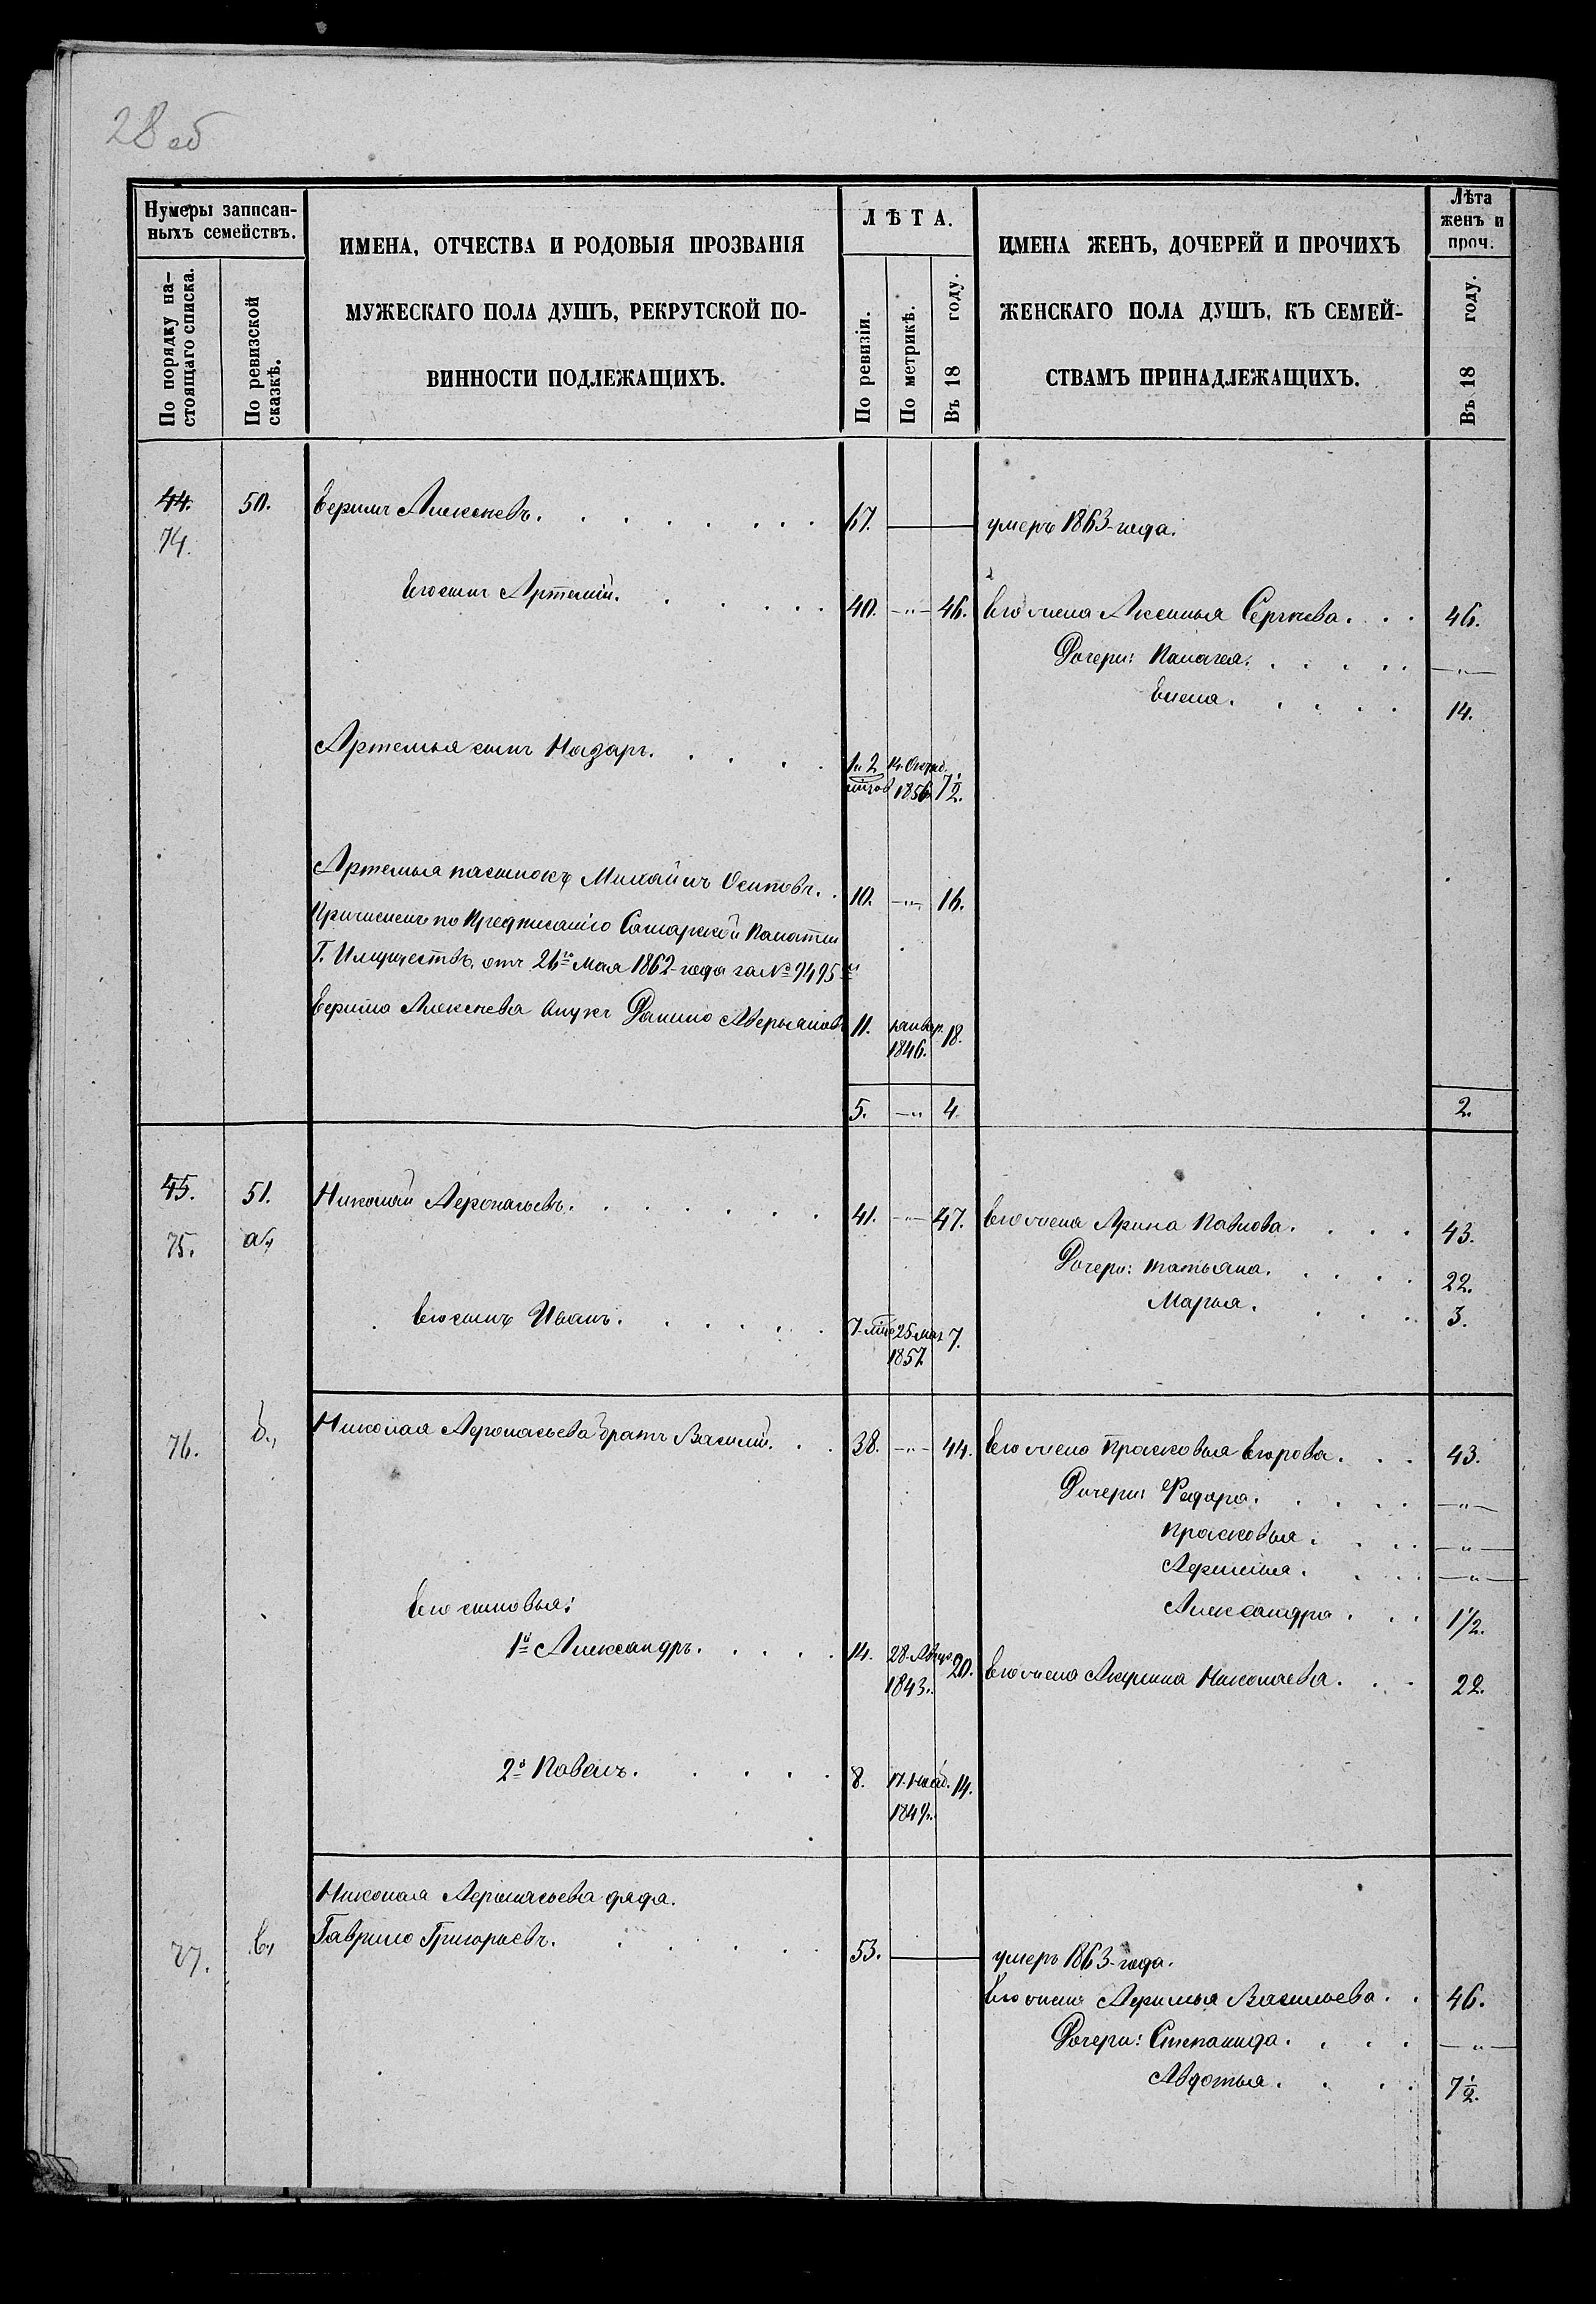 28 об
Нумеры записан-
ныхъ семействъ.
По порядку на-
стоящаго списка.
По ревизской
сказкѣ.
ИМЕНА, ОТЧЕСТВА И РОДОВЫЯ ПРОЗВАНІЯ
МУЖЕСКАГО ПОЛА ДУШЪ, РЕКРУТСКОЙ ПО-
ВИННОСТИ ПОДЛЕЖАЩИХЪ.
ЛѢТА.
По ревизіи.
По метрикѣ.
Въ 18 году.
ИМЕНА ЖЕНЪ, ДОЧЕРЕЙ И ПРОЧИХЪ
ЖЕНСКАГО ПОЛА ДУШЪ, КЪ СЕМЕЙ-
СТВАМЪ ПРИНАДЛЕЖАЩИХЪ.
Лѣта
женъ и
проч.
Въ 18 году.
44. 50. Ефимъ Алексѣевъ. 67. умеръ 1863 года.
74.
Его сынъ Артемій. 40. -"- 46. Его жена Аксинья Сергѣева. 46.
Дочери: Палагея. -"-
Елена. 14.
Артемья сынъ Назаръ. 1 и 2 14 Октяб. 7½.
1856
Артемья пасынокъ Михайла Осиповъ. 10. -"- 16.
Причисленъ по Предписанію Самарской Палаты
Г. Имуществъ, отъ 26го Мая 1862 года за № 9495
Ефима Алексѣева внукъ Данило Аверьяновъ 11. Январ. 18.
1846.
5. -"- 4. 2.
45. 51. Николай Афонасьевъ. 41. -"- 47. Его жена Арина Павлова. 43.
75. а,
Дочери: Татьяна. 22.
Марья. 3.
Его сынъ Иванъ. 7 25 Мар 7.
1857
76. б., Николая Афонасьева братъ Василій. 38. -"- 44. Его жена Прасковья Егорова. 43.
Дочери: Федора. -"-
Прасковья. -"-
Афимья. -"-
Его сыновья:
Александра. 1½.
1й Александръ. 14. 28 Авгус 20. Его жена Акулина Николаева. 22.
1843.
2й Павелъ. 8. 17. Нояб. 14.
1849.
Николая Афонасьева дядя.
77. в, Гаврило Григорьевъ. 53. умеръ 1863 года.
Его жена Афимья Васильева. 46.
Дочери: Степанида. -"-
Авдотья. 7½.